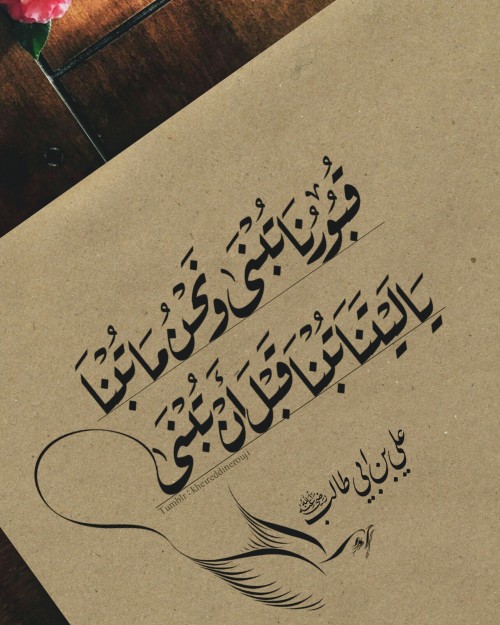 قُبُورُنَا تُبْنَى وَنَحْنُ مَا تُبْنَا
يَا لَيْتَنَا تُبْنَا قَبْلَ أَنْ تُبْنَى
Tumblr : kheireddinerouji
علي بن ابي طالب رضي الله عنه